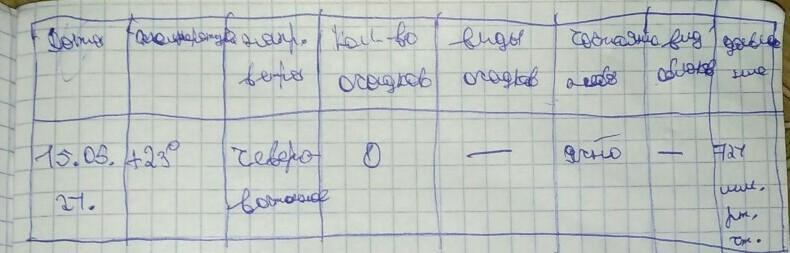 Дата температура напр. кол-во виды состояние вид давле
ветра осадков осадков неба облаков ние
15.05. +23° северо 0 — ясно — 727
21. восточное мм.
рт.
ст.